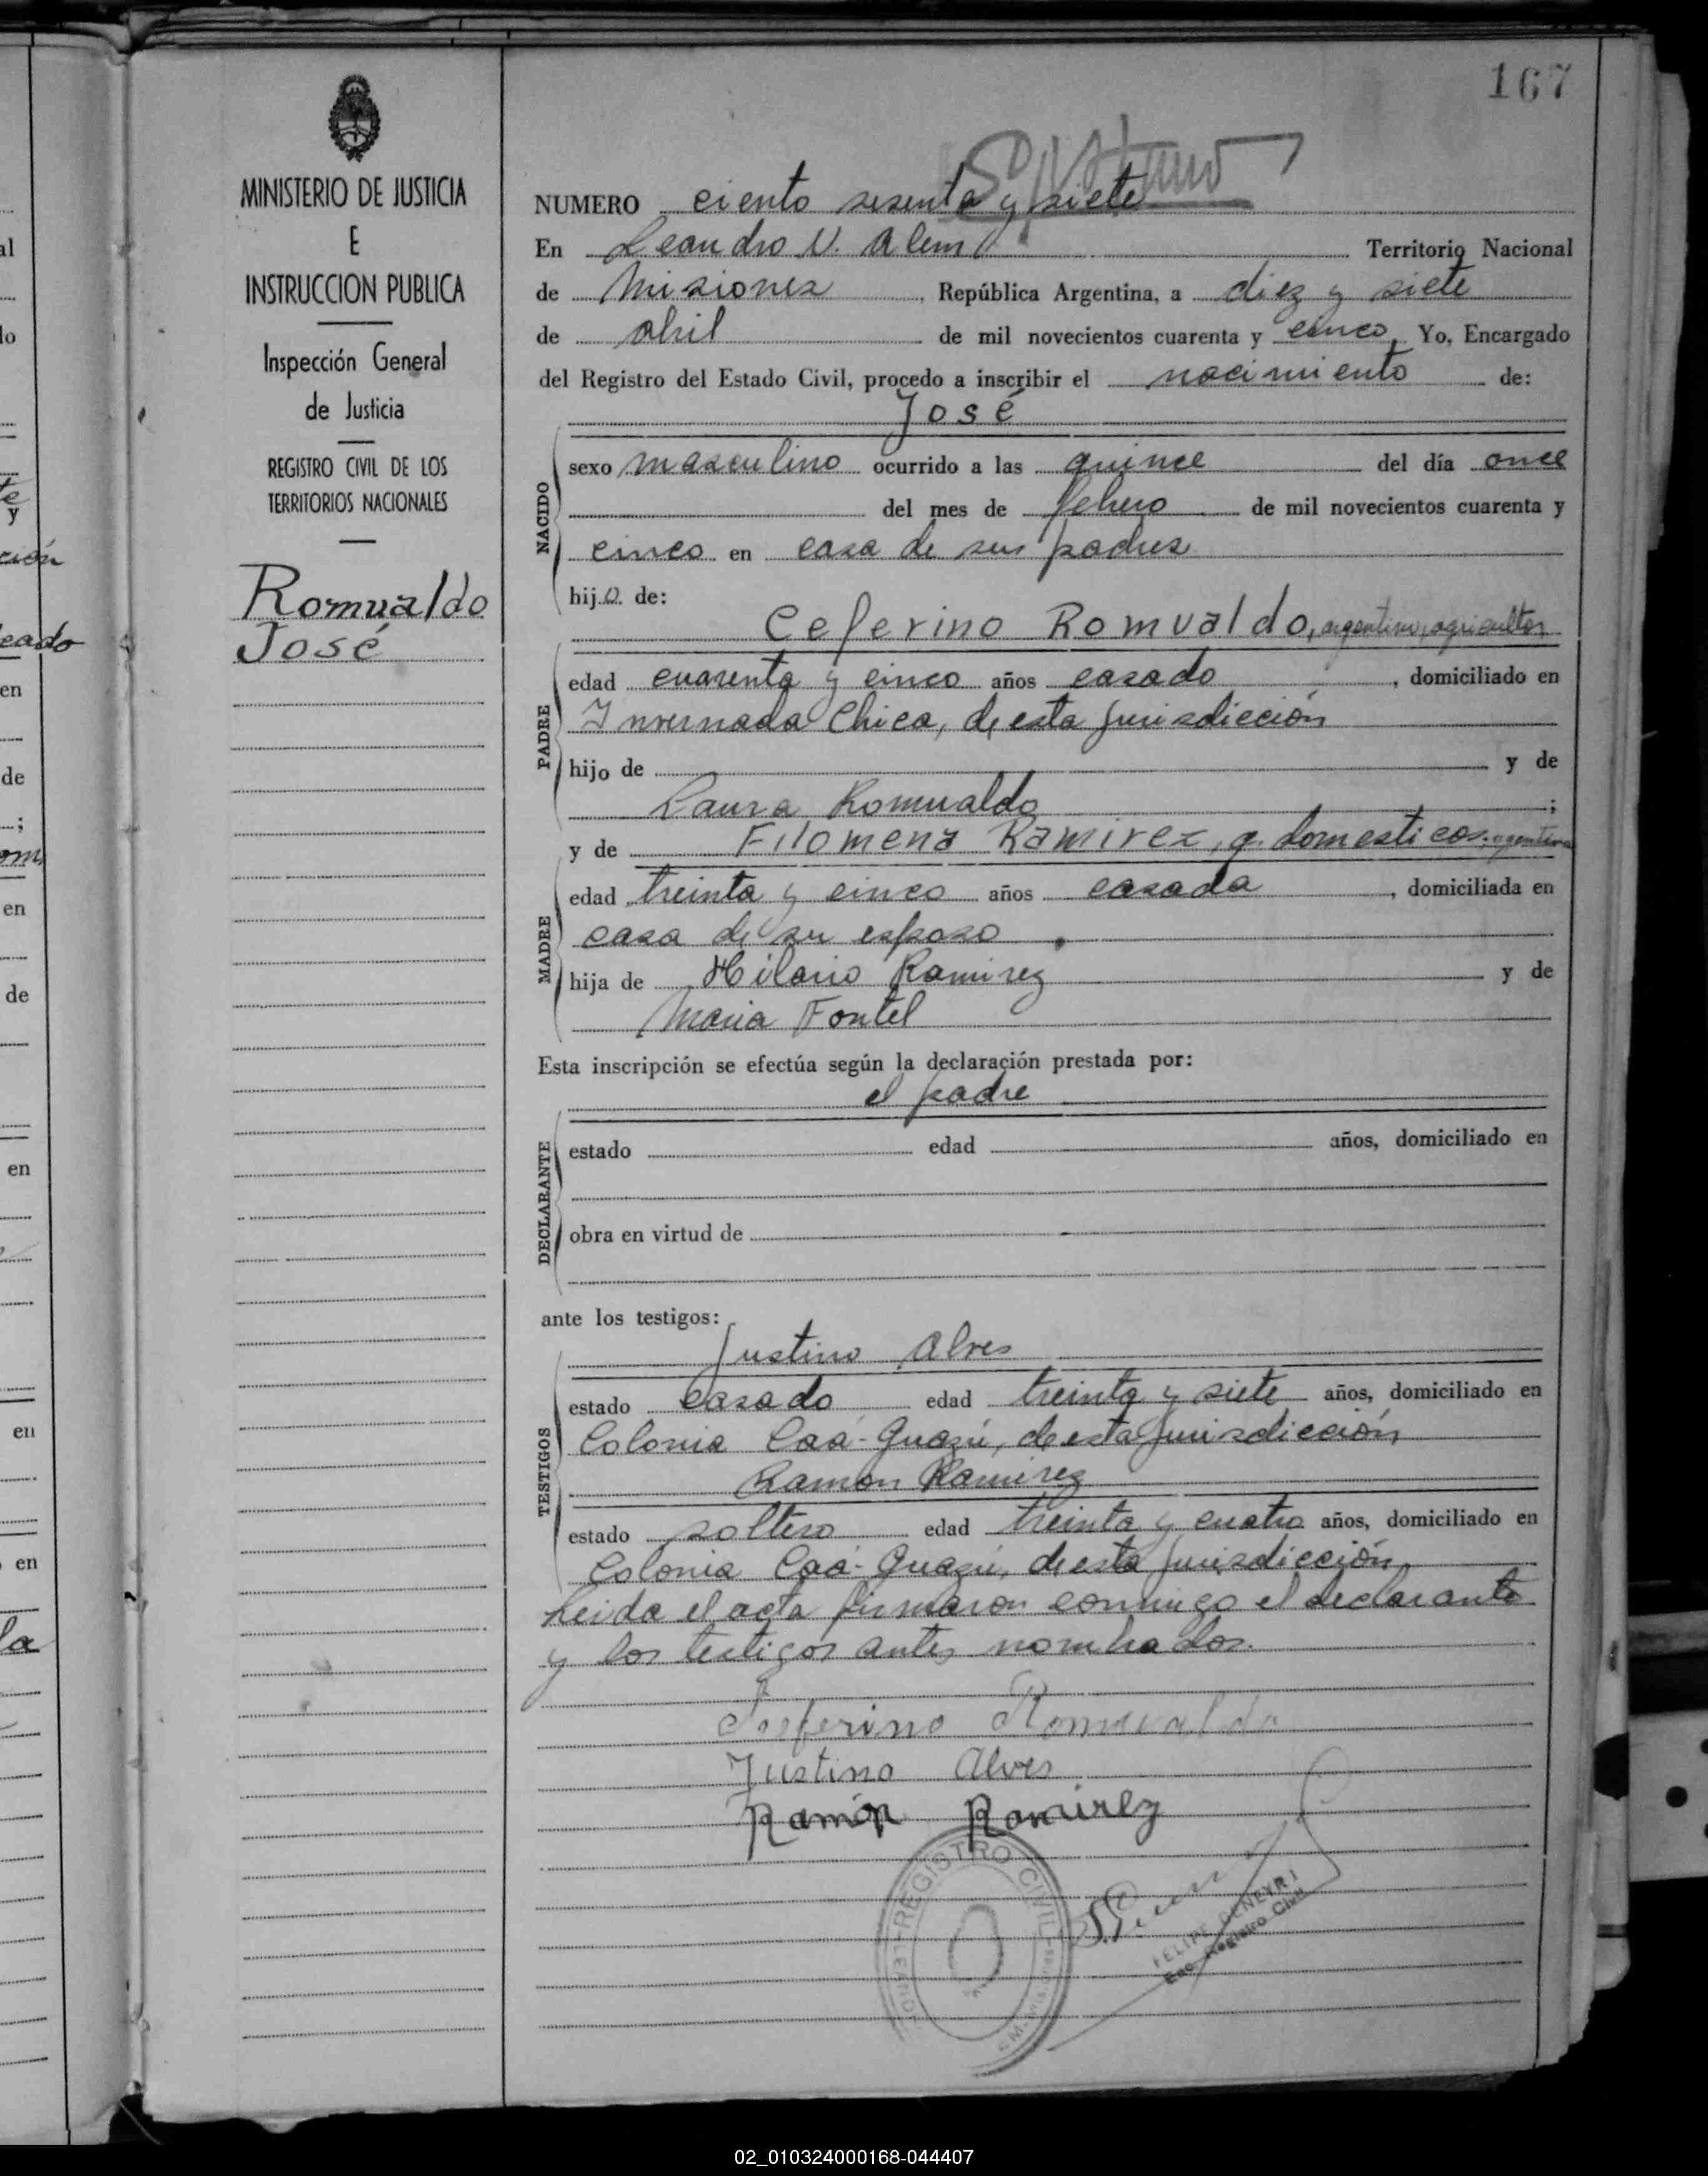 167
MINISTERIO DE JUSTICIA
E
INSTRUCCION PUBLICA
Inspección General
de Justicia
REGISTRO CIVIL DE LOS
TERRITORIOS NACIONALES
Romualdo
José
NUMERO ciento sesenta y siete
En Leandro N. Alem Territorio Nacional
de Misiones, República Argentina, a diez y siete
de abril de mil novecientos cuarenta y cinco, Yo, Encargado
del Registro del Estado Civil, procedo a inscribir el nacimiento de:
José
NACIDO
sexo masculino ocurrido a las quince del día once
del mes de febrero de mil novecientos cuarenta y
cinco en casa de sus padres
hijo de:
Ceferino Romualdo, argentino, agricultor
PADRE
edad cuarenta y cinco años casado, domiciliado en
Invernada Chica, de esta jurisdicción
hijo de y de
Laura Romualdo;
y de Filomena Ramirez, q. domesticos, argentina
MADRE
edad treinta y cinco años casada, domiciliada en
casa de su esposo
hija de Hilario Ramirez y de
Maria Fontel
Esta inscripción se efectúa según la declaración prestada por:
el padre
DECLARANTE
estado edad años, domiciliado en
obra en virtud de
ante los testigos:
Justino Alves
TESTIGOS
estado casado edad treinta y siete años, domiciliado en
Colonia Caá-Guazú, de esta jurisdicción
Ramon Ramirez
estado soltero edad treinta y cuatro años, domiciliado en
Colonia Caá-Guazú, de esta jurisdicción,
Leida el acta firmaron conmigo el declarante
y los testigos antes nombrados.
Seferino Romualdo
Justino Alves
Ramón Ramirez
REGISTRO CIVIL
Enc. Registro Civil
al
lo
te
y
ción
eado
en
de
;
om,
en
de
en
en
en
la
02_010324000168-044407